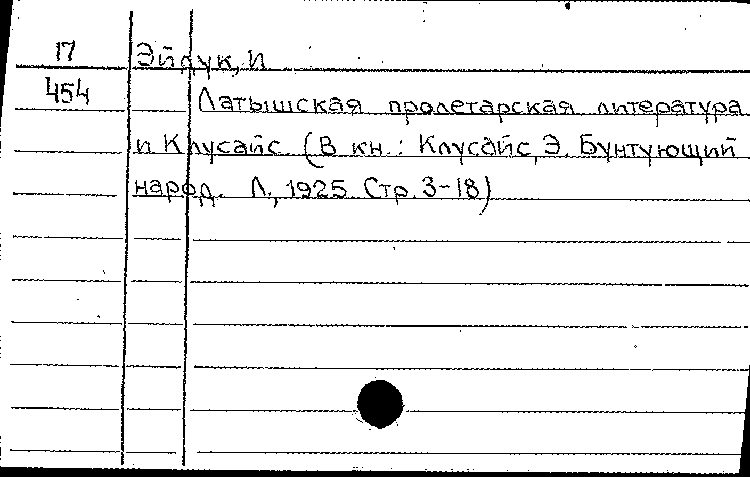 17 Эйдук, И
454
Латышская пролетарская литература
и Клусайс. (В кн.: Клусайс, Э. Бунтующий
народ. Л., 1925. Стр. 3-18)